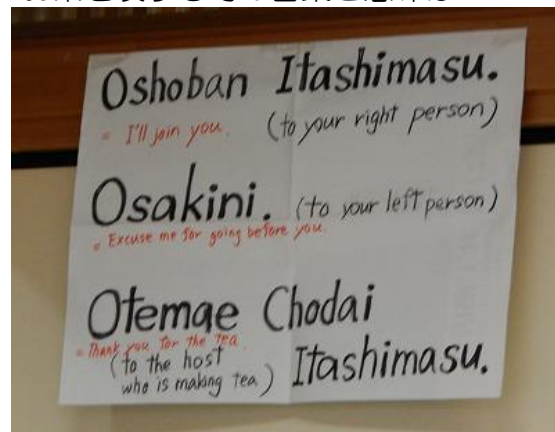 Oshoban Itashimasu.
= I'll join you. (to your right person)
Osakini. (to your left person)
= Excuse me for going before you.
Otemae Chodai
= Thank you for the tea
(to the host
who is making tea) Itashimasu.